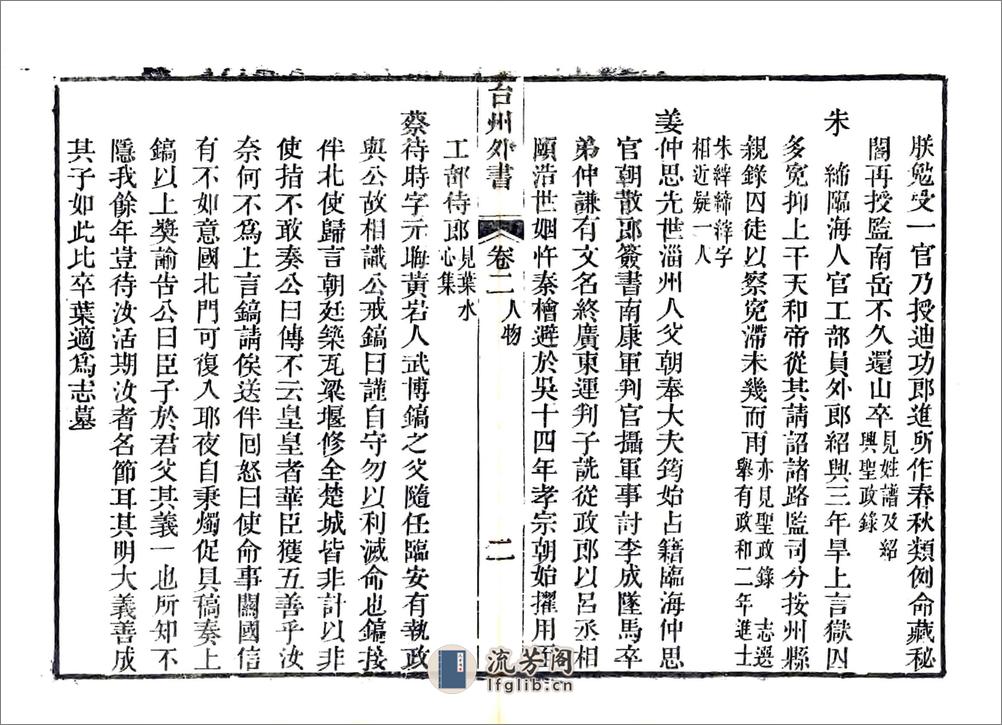 朕勉受一官乃授迪功郎進所作春秋類例命藏秘
閣再授監南岳不久還山卒見姓譜及紹興聖政錄
朱　締臨海人官工部員外郎紹興三年旱上言獄囚
多冤抑上干天和帝從其請詔諸路監司分按州縣
親錄囚徒以察冤滯未幾而雨亦見聖政錄　志選舉有政和二年進士
朱縡締縡字相近疑一人
姜仲思先世淄州人父朝奉大夫筠始占籍臨海仲思
官朝散郎簽書南康軍判官攝軍事討李成墜馬卒
弟仲謙有文名終廣東運判子詵從政郎以呂丞相
頤浩世姻忤秦檜避於吳十四年孝宗朝始擢用至
台州外書　卷二　人物　二
工部侍郎見葉水心集
蔡待時字元晦黃岩人武博鎬之父隨任臨安有執政
與公故相識公戒鎬曰謹自守勿以利滅命也鎬接
伴北使歸言朝廷築瓦梁堰修全楚城皆非計以非
使指不敢奏公曰傳不云皇皇者華臣獲五善乎汝
奈何不為上言鎬請俟送伴回怒曰使命事關國信
有不如意國北門可復入耶夜自秉燭促具稿奏上
鎬以上獎諭告公曰臣子於君父其義一也所知不
隱我餘年豈待汝活期汝者名節耳其明大義善成
其子如此比卒葉適爲志墓
流芳閣
lfglib.cn